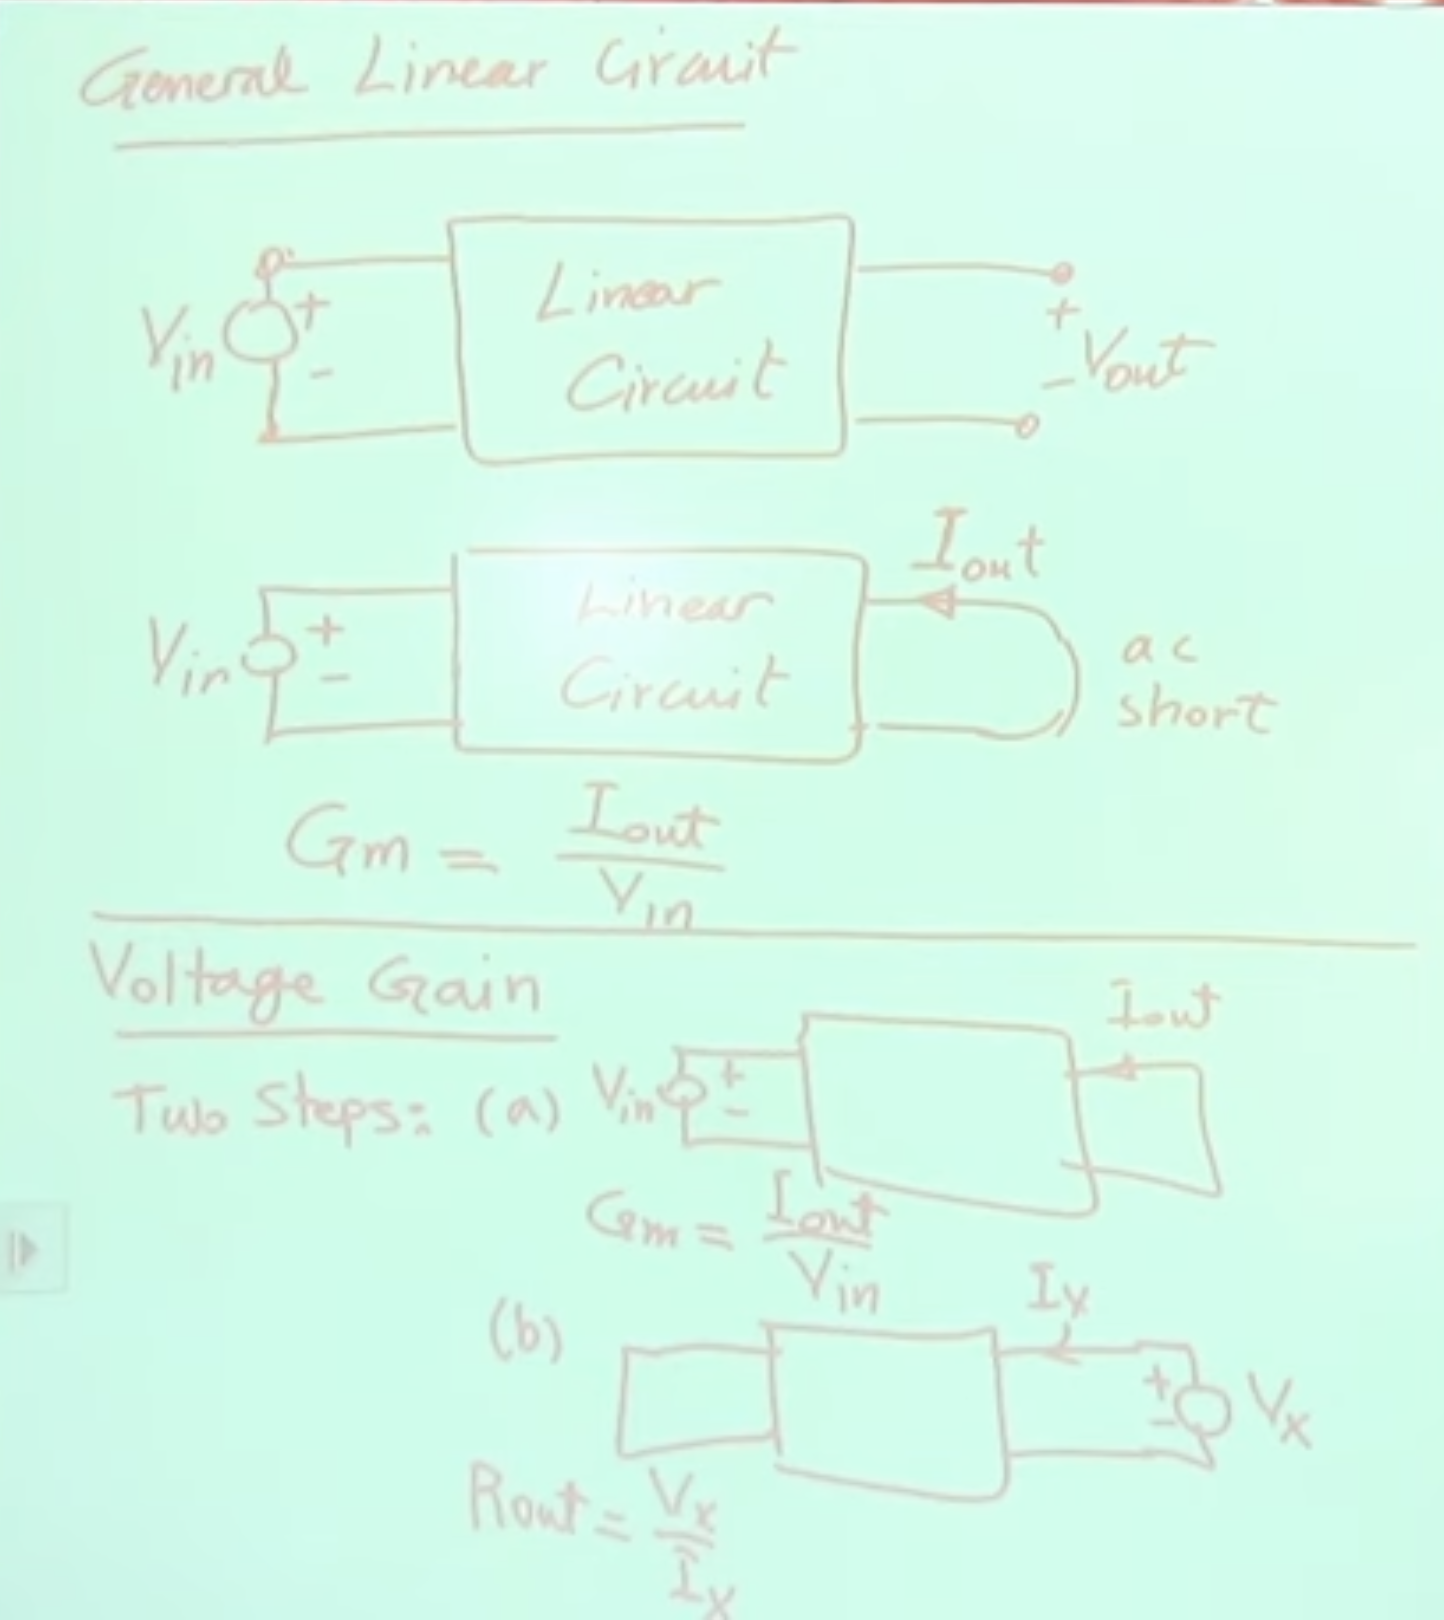 General Linear Circuit
Vin + -
Linear
Circuit
+ Vout -
Iout
Vin + -
Linear
Circuit
ac
short
Gm = Iout / Vin
Voltage Gain
Two Steps: (a) Vin + -
Iout
Gm = Iout / Vin
(b)
Ix
+ - Vx
Rout = Vx / Ix